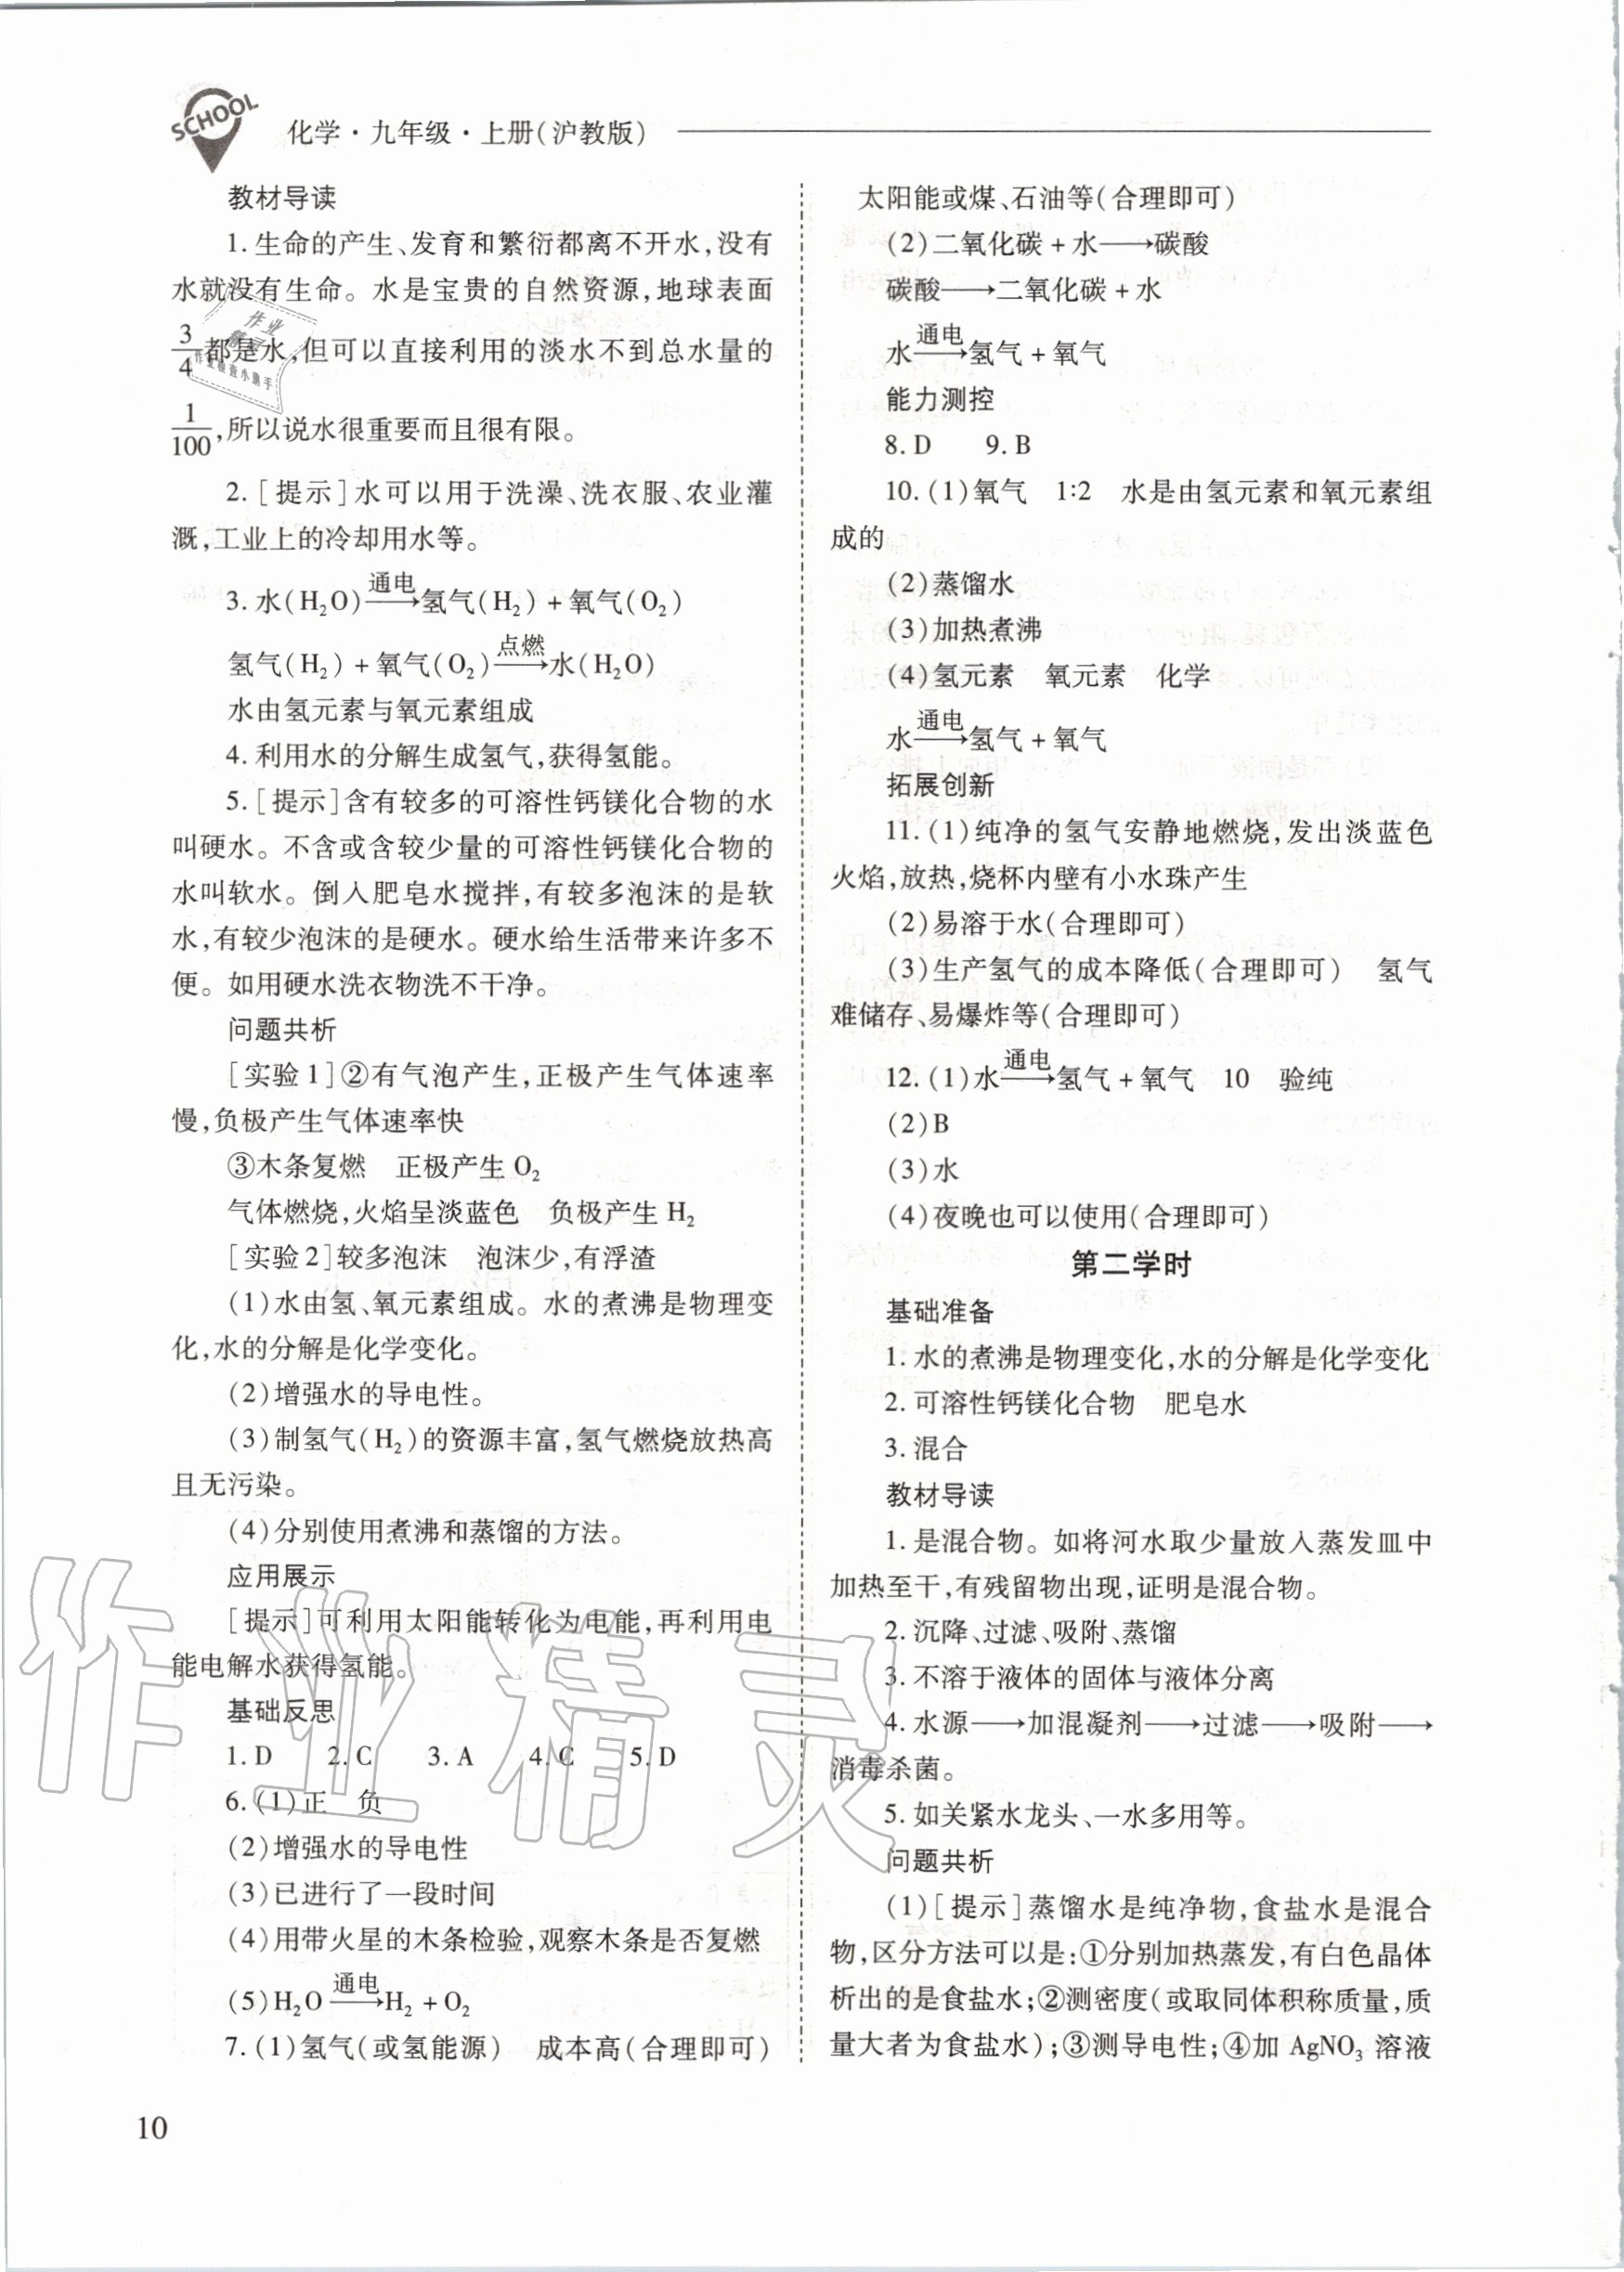 SCHOOL
化学·九年级·上册(沪教版)
教材导读
1. 生命的产生、发育和繁衍都离不开水,没有
水就没有生命。水是宝贵的自然资源,地球表面
3/4都是水,但可以直接利用的淡水不到总水量的
1/100,所以说水很重要而且很有限。
2. [提示]水可以用于洗澡、洗衣服、农业灌
溉,工业上的冷却用水等。
3. 水(H₂O) 通电⟶ 氢气(H₂) + 氧气(O₂)
氢气(H₂) + 氧气(O₂) 点燃⟶ 水(H₂O)
水由氢元素与氧元素组成
4. 利用水的分解生成氢气,获得氢能。
5. [提示]含有较多的可溶性钙镁化合物的水
叫硬水。不含或含较少量的可溶性钙镁化合物的
水叫软水。倒入肥皂水搅拌,有较多泡沫的是软
水,有较少泡沫的是硬水。硬水给生活带来许多不
便。如用硬水洗衣物洗不干净。
问题共析
[实验1]②有气泡产生,正极产生气体速率
慢,负极产生气体速率快
③木条复燃 正极产生 O₂
气体燃烧,火焰呈淡蓝色 负极产生 H₂
[实验2]较多泡沫 泡沫少,有浮渣
(1)水由氢、氧元素组成。水的煮沸是物理变
化,水的分解是化学变化。
(2)增强水的导电性。
(3)制氢气(H₂)的资源丰富,氢气燃烧放热高
且无污染。
(4)分别使用煮沸和蒸馏的方法。
应用展示
[提示]可利用太阳能转化为电能,再利用电
能电解水获得氢能。
基础反思
1. D 2. C 3. A 4. C 5. D
6. (1)正 负
(2)增强水的导电性
(3)已进行了一段时间
(4)用带火星的木条检验,观察木条是否复燃
(5)H₂O 通电⟶ H₂ + O₂
7. (1)氢气(或氢能源) 成本高(合理即可)
太阳能或煤、石油等(合理即可)
(2)二氧化碳 + 水⟶碳酸
碳酸⟶二氧化碳 + 水
水 通电⟶ 氢气 + 氧气
能力测控
8. D 9. B
10. (1)氧气 1∶2 水是由氢元素和氧元素组
成的
(2)蒸馏水
(3)加热煮沸
(4)氢元素 氧元素 化学
水 通电⟶ 氢气 + 氧气
拓展创新
11. (1)纯净的氢气安静地燃烧,发出淡蓝色
火焰,放热,烧杯内壁有小水珠产生
(2)易溶于水(合理即可)
(3)生产氢气的成本降低(合理即可) 氢气
难储存、易爆炸等(合理即可)
12. (1)水 通电⟶ 氢气 + 氧气 10 验纯
(2)B
(3)水
(4)夜晚也可以使用(合理即可)
第二学时
基础准备
1. 水的煮沸是物理变化,水的分解是化学变化
2. 可溶性钙镁化合物 肥皂水
3. 混合
教材导读
1. 是混合物。如将河水取少量放入蒸发皿中
加热至干,有残留物出现,证明是混合物。
2. 沉降、过滤、吸附、蒸馏
3. 不溶于液体的固体与液体分离
4. 水源⟶加混凝剂⟶过滤⟶吸附⟶
消毒杀菌。
5. 如关紧水龙头、一水多用等。
问题共析
(1)[提示]蒸馏水是纯净物,食盐水是混合
物,区分方法可以是:①分别加热蒸发,有白色晶体
析出的是食盐水;②测密度(或取同体积称质量,质
量大者为食盐水);③测导电性;④加 AgNO₃ 溶液
10
作业精灵
作业
精灵
作业检查小助手